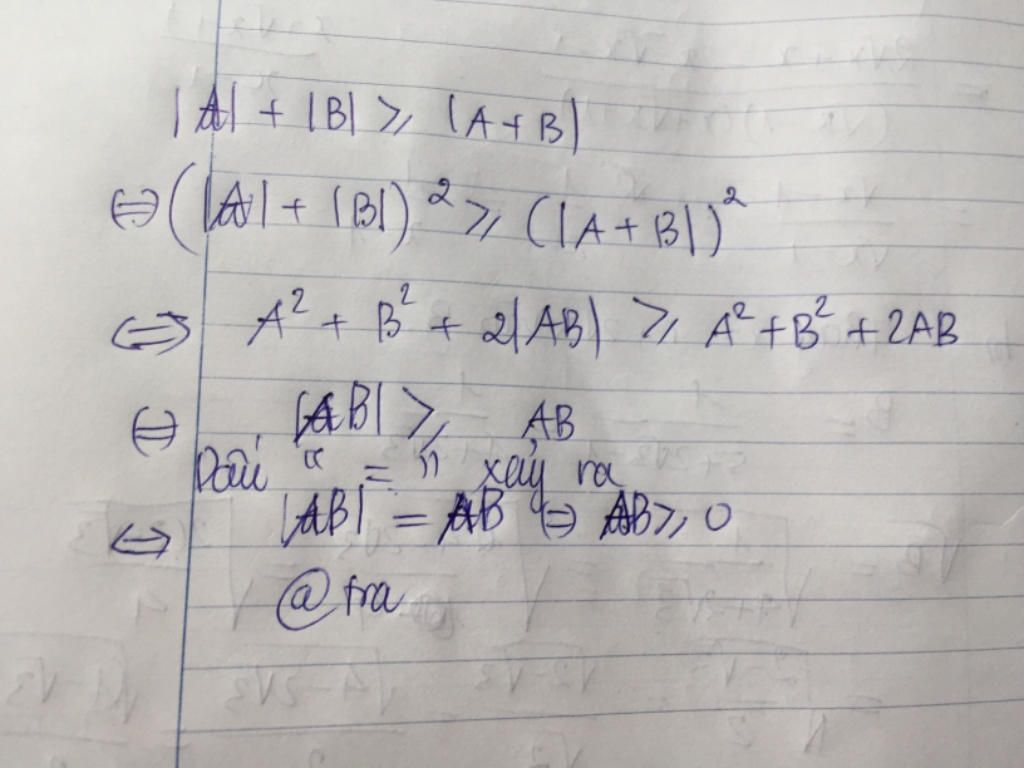 |A| + |B| ⩾ |A + B|
⇔ (|A| + |B|)² ⩾ (|A + B|)²
⇔ A² + B² + 2|AB| ⩾ A² + B² + 2AB
⇔ |AB| ⩾ AB
Dấu " = " xảy ra
⇔ |AB| = AB ⇔ AB ⩾ 0
@tra